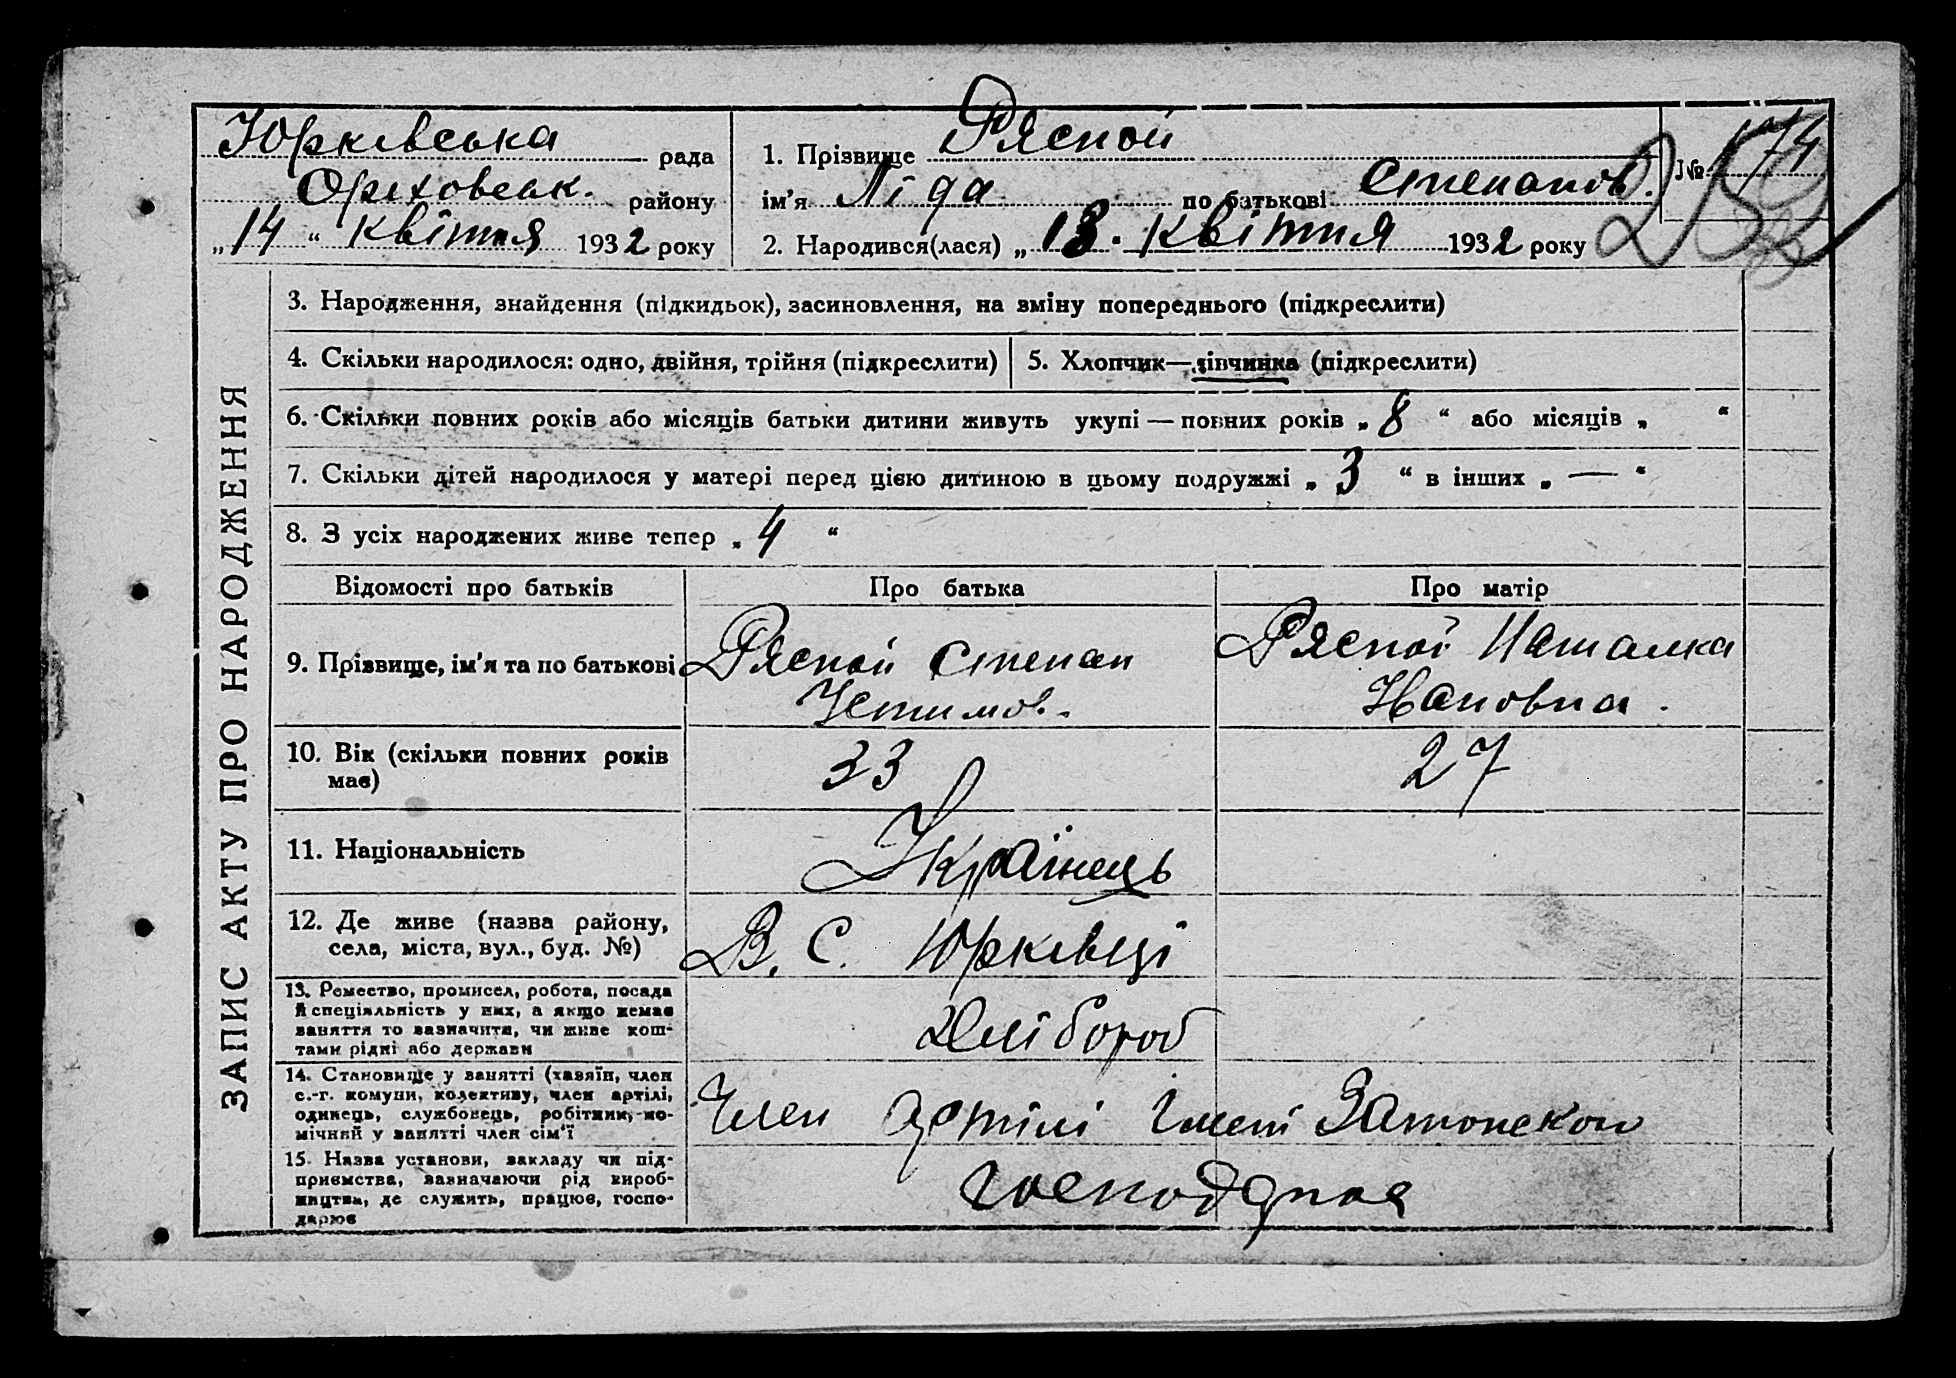 Юрківська рада
Оріховськ. району
„14“ квітня 1932 року
1. Прізвище Рясной
ім'я Ліда по батькові Степанов.
2. Народився(лася) „13. квітня 1932 року
№ 174
252
ЗАПИС АКТУ ПРО НАРОДЖЕННЯ
3. Народження, знайдення (підкидьок), засиновлення, на зміну попереднього (підкреслити)
4. Скільки народилося: одно, двійня, трійня (підкреслити)
5. Хлопчик—дівчинка (підкреслити)
6. Скільки повних років або місяців батьки дитини живуть укупі — повних років „8“ або місяців „ “
7. Скільки дітей народилося у матері перед цією дитиною в цьому подружжі „3“ в інших „—“
8. З усіх народжених живе тепер „4“
Відомості про батьків
Про батька
Про матір
9. Прізвище, ім'я та по батькові
Рясной Степан
Устимов.
Рясной Наталка
10. Вік (скільки повних років
має)
33
27
11. Національність
Українець
12. Де живе (назва району,
села, міста, вул., буд. №)
В. С. Юрківці
13. Ремество, промисел, робота, посада
й спеціяльність у них, а якщо немає
заняття то зазначити, чи живе кош-
тами рідні або держави
Хлібороб
14. Становище у занятті (хазяїн, член
с.-г. комуни, колективу, член артілі,
одинець, службовець, робітник, по-
мічний у занятті член сім'ї
Член артілі імені Затонского
15. Назва установи, закладу чи під-
приємства, зазначаючи рід вироб-
ництва, де служить, працює, госпо-
дарює